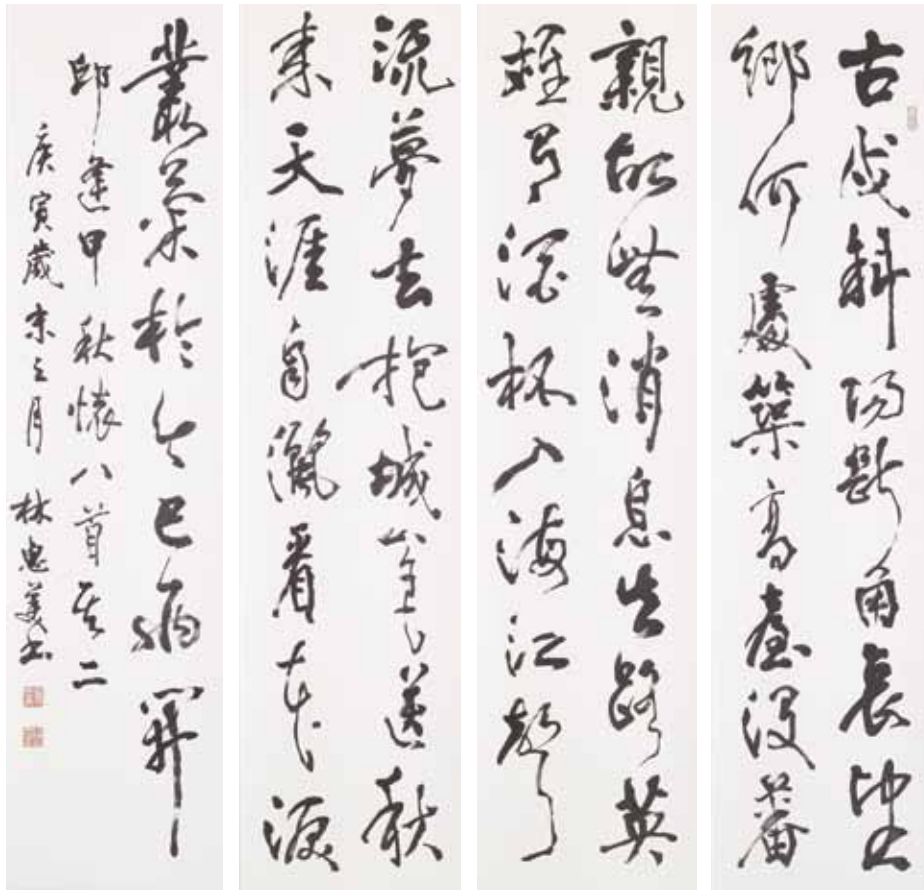 古戍斜陽斷角哀望
鄉何處築高臺沒蕃
親故無消息失路英
雄有酒杯入海江聲
流夢去抱城山色送秋
來天涯自灑看花淚
叢菊於今已兩開
邱逢甲 秋懷八首其二
庚寅歲末之月 林 書